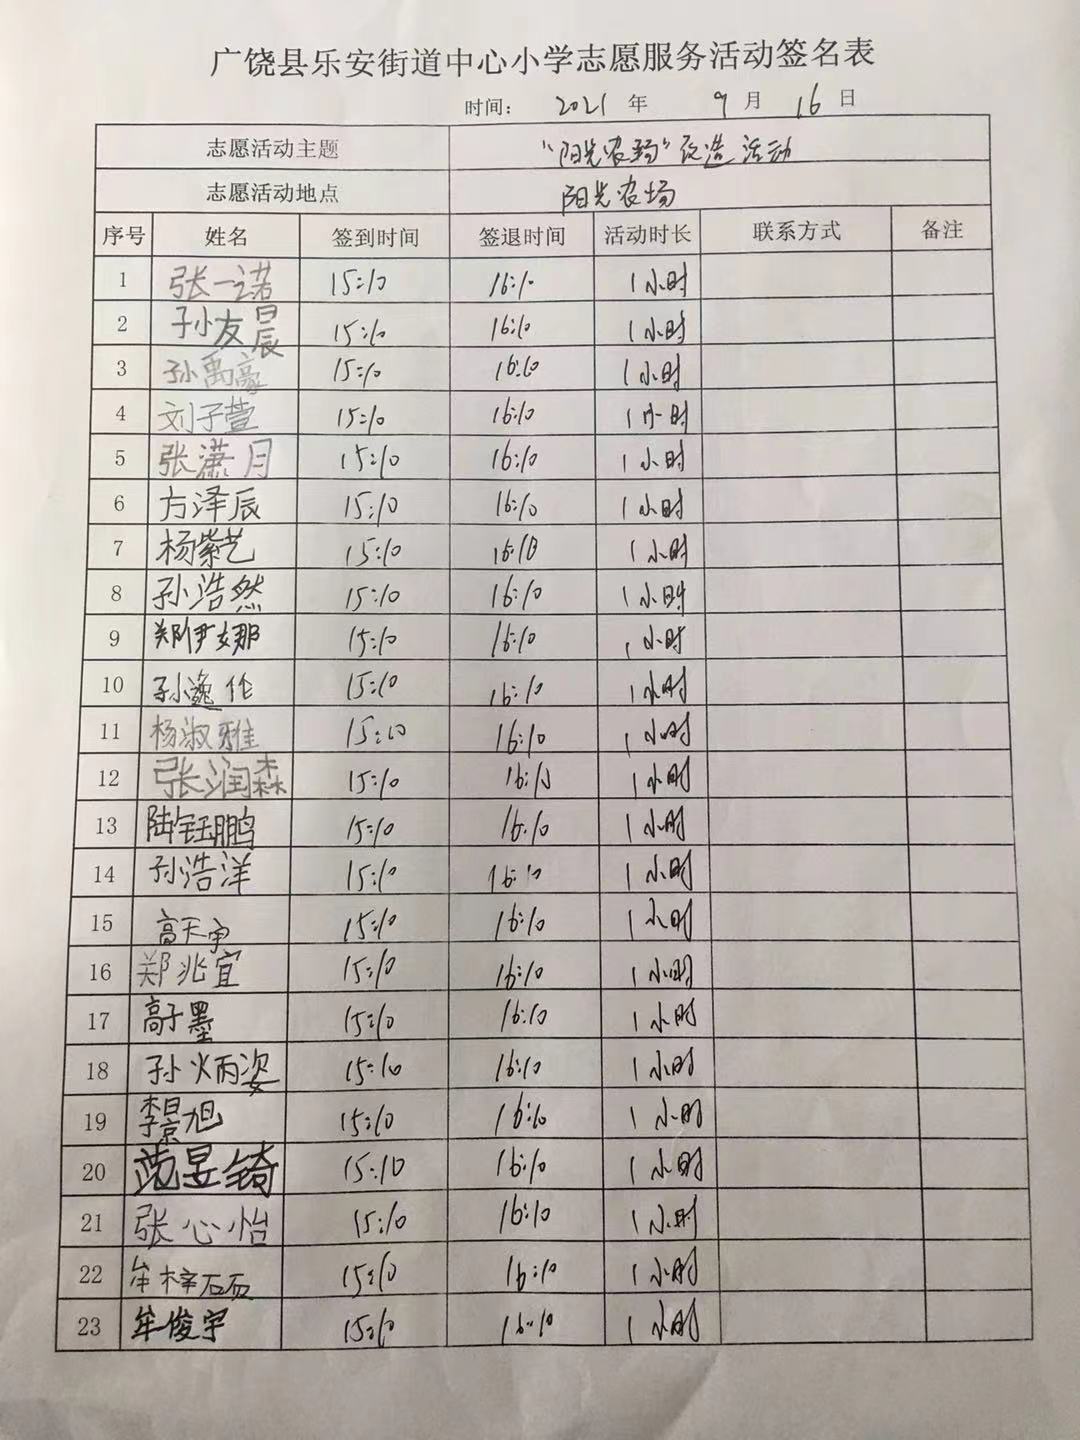 广饶县乐安街道中心小学志愿服务活动签名表
时间： 2021 年 9 月 16 日
志愿活动主题 “阳光农场”改造活动
志愿活动地点 阳光农场
序号 姓名 签到时间 签退时间 活动时长 联系方式 备注
1 张一诺 15:10 16:10 1小时
2 孙友晨 15:10 16:10 1小时
3 孙禹豪 15:10 16:10 1小时
4 刘子萱 15:10 16:10 1小时
5 张潇月 15:10 16:10 1小时
6 方泽辰 15:10 16:10 1小时
7 杨紫艺 15:10 16:10 1小时
8 孙浩然 15:10 16:10 1小时
9 郑伊娜 15:10 16:10 1小时
10 孙逸伦 15:10 16:10 1小时
11 杨淑雅 15:10 16:10 1小时
12 张润森 15:10 16:10 1小时
13 陆钰鹏 15:10 16:10 1小时
14 孙浩洋 15:10 16:10 1小时
15 高天 15:10 16:10 1小时
16 郑兆宜 15:10 16:10 1小时
17 高子墨 15:10 16:10 1小时
18 孙炳姿 15:10 16:10 1小时
19 李景旭 15:10 16:10 1小时
20 昱锜 15:10 16:10 1小时
21 张心怡 15:10 16:10 1小时
22 牟梓硕 15:10 16:10 1小时
23 牟俊宇 15:10 16:10 1小时